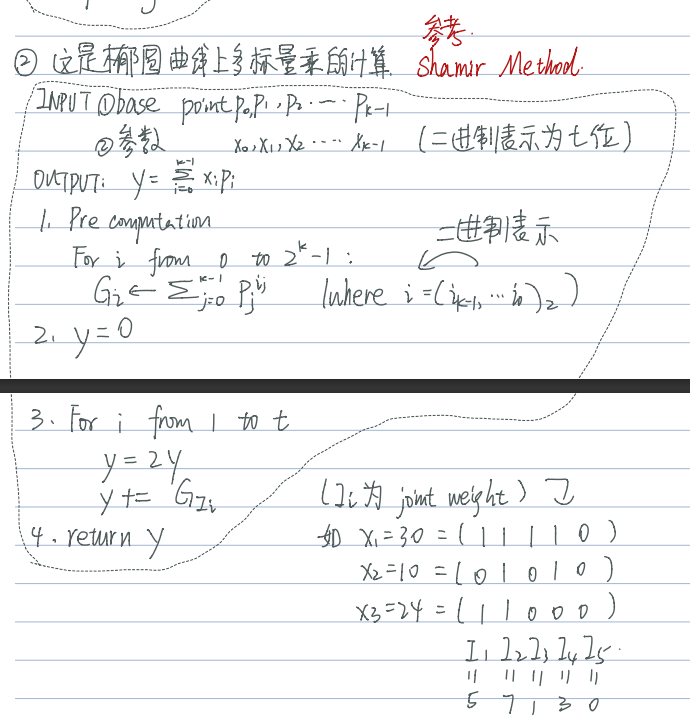 参考.
② 这是椭圆曲线上多标量乘的计算. Shamir Method.
INPUT ①base point P0,P1,P2.···Pk-1
②参数 x0,x1,x2···· xk-1 (二进制表示为t位)
OUTPUT: y=∑_{i=0}^{k-1} xiPi
1. Pre computation
二进制表示
For i from 0 to 2^k-1:
Gi←∑_{j=0}^{k-1} Pj^{ij} (where i=(ik-1,···i0)2)
2. y=0
3. For i from 1 to t
y=2y
y+= G_{Ii} (Ii为 joint weight)
4. return y 如 x1=30=(11110)
x2=10=(01010)
x3=24=(11000)
I1 I2 I3 I4 I5.
= = = = =
5 7 1 3 0